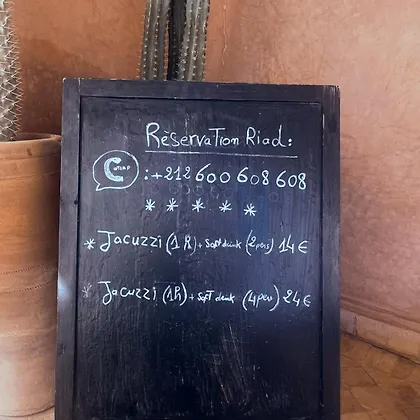 Rèservation Riad:
:+212 600 608 608
* * * * *
* Jacuzzi (1 R) + Soft drink (2 pers) 14 €
* Jacuzzi (1R) + Soft drink (4 pers) 24 €